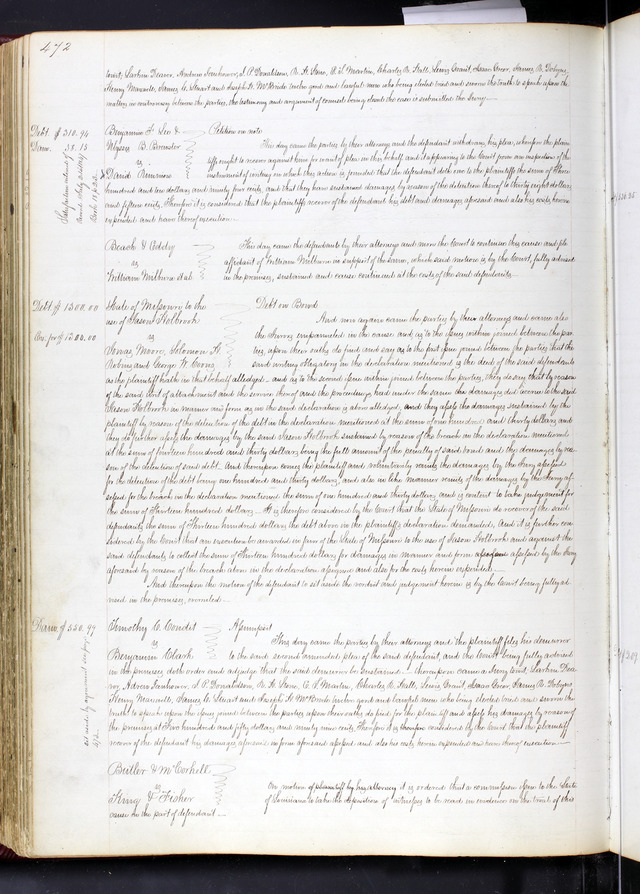 472
towit, Larkin Deaver, Andrew Isenhower, S. P. Donaldson, B. H. Stone, Charles B. Hall, Lewis Grant, Isaac Greer, James B.
Henry Maxwell, James C. Stewart and Joseph H. McBride twelve good and lawful men who being elected tried and sworn the truth to speak upon the
matters in controversy between the parties, the testimony and argument of counsel being closed the case is submitted to the Jury.
Debt $ 310.94
Dam. 38.15
Benjamin F. Lee &
Petition on note
Ulysses B. Brewster
vs
David
This day came the parties by their attorneys and the defendant withdraws his plea, wherefore the plain
tiffs ought to recover against him for want of plea on their behalf and it appearing to the Court from an inspection of the
instrument of writing on which this action is founded that the defendant doth owe to the plaintiffs the sum of three
hundred and ten dollars and ninety four cents, and that they have sustained damages by reason of the detention thereof to thirty eight dollars
and fifteen cents. Therefore it is considered that the plaintiffs recover of the defendant his debt and damages aforesaid and also his costs herein
expended and have thereof execution.
Beach & Eddy
vs
William Milburn et al
This day came the defendants by their attorneys and move the Court to continue this cause and file
affidavit of William Milburn in support of the same, which said motion is by the Court, fully advised
in the premises, sustained and cause continued at the costs of the said defendants.
Debt $ 1300.00
1300.00
State of Missouri to the
use of Jason Holbrook
vs
Thomas Moore, Solomon H.
Robins and George W.
Debt on Bond
And now again came the parties by their attorneys and came also
the Jurors empannelled in the cause and as to the issues within joined between the par
ties, upon their oaths do find and say as to the first issue joined between the parties that the
said writing obligatory in the declaration mentioned is the deed of the said defendants
as the plaintiff hath in that behalf alledged, and as to the second issue within joined between the parties, they do say that by reason
of the said writ of attachment and the service thereof and the proceedings had under the same the damages did accrue to the said
Jason Holbrook in manner and form as in the said declaration is above alledged, and they assess the damages sustained by the
plaintiff by reason of the detention of the debt in the declaration mentioned at the sum of one hundred and thirty dollars, and
they do further assess the damages by the said Jason Holbrook sustained by reason of the breach in the declaration mentioned
at the sum of fourteen hundred and thirty dollars being the full amount of the penalty of said bond and the damages by rea
son of the detention of said debt. And thereupon comes the plaintiff and voluntarily remits the damages by the Jury assessed
for the detention of the debt being one hundred and thirty dollars, and also in like manner remits of the damages by the Jury as
sessed for the breach in the declaration mentioned the sum of one hundred and thirty dollars, and is content to take judgement for
the sum of thirteen hundred dollars. It is therefore considered by the Court that the State of Missouri do recover of the said
defendants the sum of Thirteen hundred dollars the debt above in the plaintiffs declaration demanded, And it is further con
sidered by the Court that an execution be awarded in favor of the State of Missouri to the use of Jason Holbrook and against the
said defendants to collect the sum of Thirteen hundred dollars for damages in manner and form assessed by the Jury
aforesaid by reason of the breach above in the declaration assigned and also for the costs herein expended.
And thereupon the motion of the defendant to set aside the verdict and judgement herein is by the Court being fully ad
vised in the premises, overruled.
Dam. $ 550.99
set aside by agreement see page
512
Timothy C. Condit
vs
Benjamin Clark
Assumpsit
This day came the parties by their attorneys and the plaintiff files his demurrer
to the second amended plea of the said defendant, and the Court being fully advised
in the premises doth order and adjudge that the said demurrer be sustained. Thereupon came a Jury towit, Larkin Dea
ver, Andrew Isenhower, S. P. Donaldson, B. H. Stone, Charles B. Hall, Lewis Grant, Isaac Greer, James B.
Henry Maxwell, James C. Stewart and Joseph H. McBride twelve good and lawful men who being elected tried and sworn the
truth to speak upon the issue joined between the parties upon their oaths do find for the plaintiff and assess his damages by reason of
the premises at Five hundred and fifty dollars and ninety nine cents. Therefore it is considered by the Court that the plaintiff
recover of the defendant his damages aforesaid in form aforesaid assessed and also his costs herein expended and have thereof execution.
Butler & McCorkell
vs
King & Fisher
On motion of plaintiff by his attorney it is ordered that a commission issue to the State
of Louisiana to take the depositions of witnesses to be read in evidence on the trial of this
cause on the part of defendant.